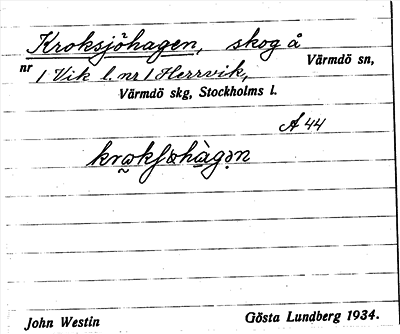 Kroksjöhagen, skog å
nr 1 Vik l. nr 1 Herrvik, Värmdö sn,
Värmdö skg, Stockholms l.
A 44
John Westin Gösta Lundberg 1934.